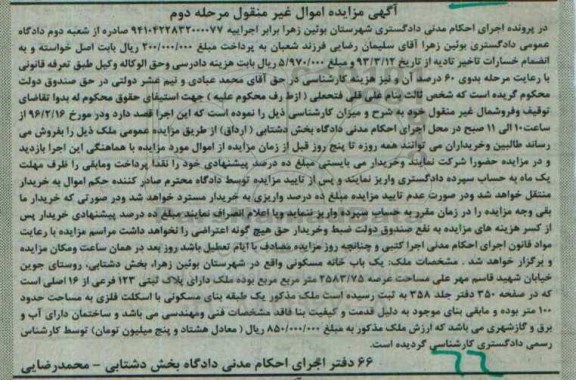 آگهی مزایده اموال غیر منقول مرحله دوم
در پرونده اجرای احکام مدنی دادگستری شهرستان بوئین زهرا برابر اجراییه ۹۴۱۰۴۲۲۸۳۲۰۰۰۰۷۷ صادره از شعبه دوم دادگاه
عمومی دادگستری بوئین زهرا آقای سلیمان رضایی فرزند شعبان به پرداخت مبلغ ۲۰۰/۰۰۰/۰۰۰ ریال بابت اصل خواسته و به
انضمام خسارات تاخیر تادیه از تاریخ ۹۳/۳/۱۲ و مبلغ ۵/۹۷۰/۰۰۰ ریال بابت هزینه دادرسی وحق الوکاله وکیل طبق تعرفه قانونی
با رعایت مرحله بدوی ۶۰ درصد آن و نیز هزینه کارشناسی در حق آقای محمد عبادی و نیم عشر دولتی در حق صندوق دولت
محکوم گریده است که شخص ثالث بنام علی قلی فتحعلی (ازط رف محکوم علیه) جهت استیفای حقوق محکوم له بدوا تقاضای
توقیف وفروشمال غیر منقول خود به شرح و میزان کارشناسی ذیل را نموده است که این اجرا قصد دارد ودر مورخ ۹۶/۳/۱۶ از
ساعت۱۰ الی ۱۱ صبح در محل اجرای احکام مدنی دادگاه بخش دشتابی (ارداق) از طریق مزایده عمومی ملک ذیل را بفروش می
رساند طالبین وخریداران می توانند همه روزه تا پنج روز قبل از زمان مزایده از اموال مورد مزایده با هماهنگی این اجرا بازدید
و در مزایده حضورا شرکت نمایند وخریدار می بایستی مبلغ ده درصد پیشنهادی خود را نقدا پرداخت ومابقی را ظرف مهلت
یک ماه به حساب سپرده دادگستری واریز نمایند و پس از تایید مزایده توسط دادگاه محترم صادر کننده حکم اموال به خریدار
منتقل خواهد شد ودر صورت عدم تایید مزایده مبلغ ده درصد واریزی به خریدار مسترد خواهد شد ودر صورتی که خریدار ما
بقی وجه مزایده را در زمان مقرر به حساب سپرده واریز ننماید ویا اعلام انصراف نمایند مبلغ ده درصد پیشنهادی خریدار پس
از کسر هزینه های مزایده به نفع صندوق دولت ضبط وخریدار حق هیچ گونه اعتراضی را نخواهد داشت مراسم مزایده با رعایت
مواد قانون اجرای احکام مدنی اجرا کتبی و چنانچه روز مزایده مصادف با ایام تعطیل باشد روز بعد در همان ساعت ومکان مزایده
و برگزار خواهد شد . مشخصات ملک: یک باب خانه مسکونی واقع در شهرستان بوئین زهرا، بخش دشتابی، روستای جوین
خیابان شهید قاسم مهر علی مساحت عرصه ۲۵۸۳/۷۵ متر مربع مربع بوده ملک دارای پلاک ثبتی ۱۲۳ فرعی از ۱۶ اصلی است
که در صفحه ۳۵۰ دفتر جلد ۳۵۸ به ثبت رسیده است ملک مذکور یک طبقه بنای مسکونی با اسکلت فلزی به مساحت حدود
۱۰۰ متر بوده و مابقی بنای موجود به دلیل قدمت و کیفیت بنا فاقد مشخصات فنی ومهندسی می باشد و ساختمان دارای آب و
برق و گازشهری می باشد که ارزش ملک مذکور به مبلغ ۸۵۰/۰۰۰/۰۰۰ ریال (معادل هشتاد و پنج میلیون تومان) توسط کارشناس
رسمی دادگستری کارشناسی گردیده است.
۶۶ دفتر اجرای احکام مدنی دادگاه بخش دشتابی – محمدرضایی